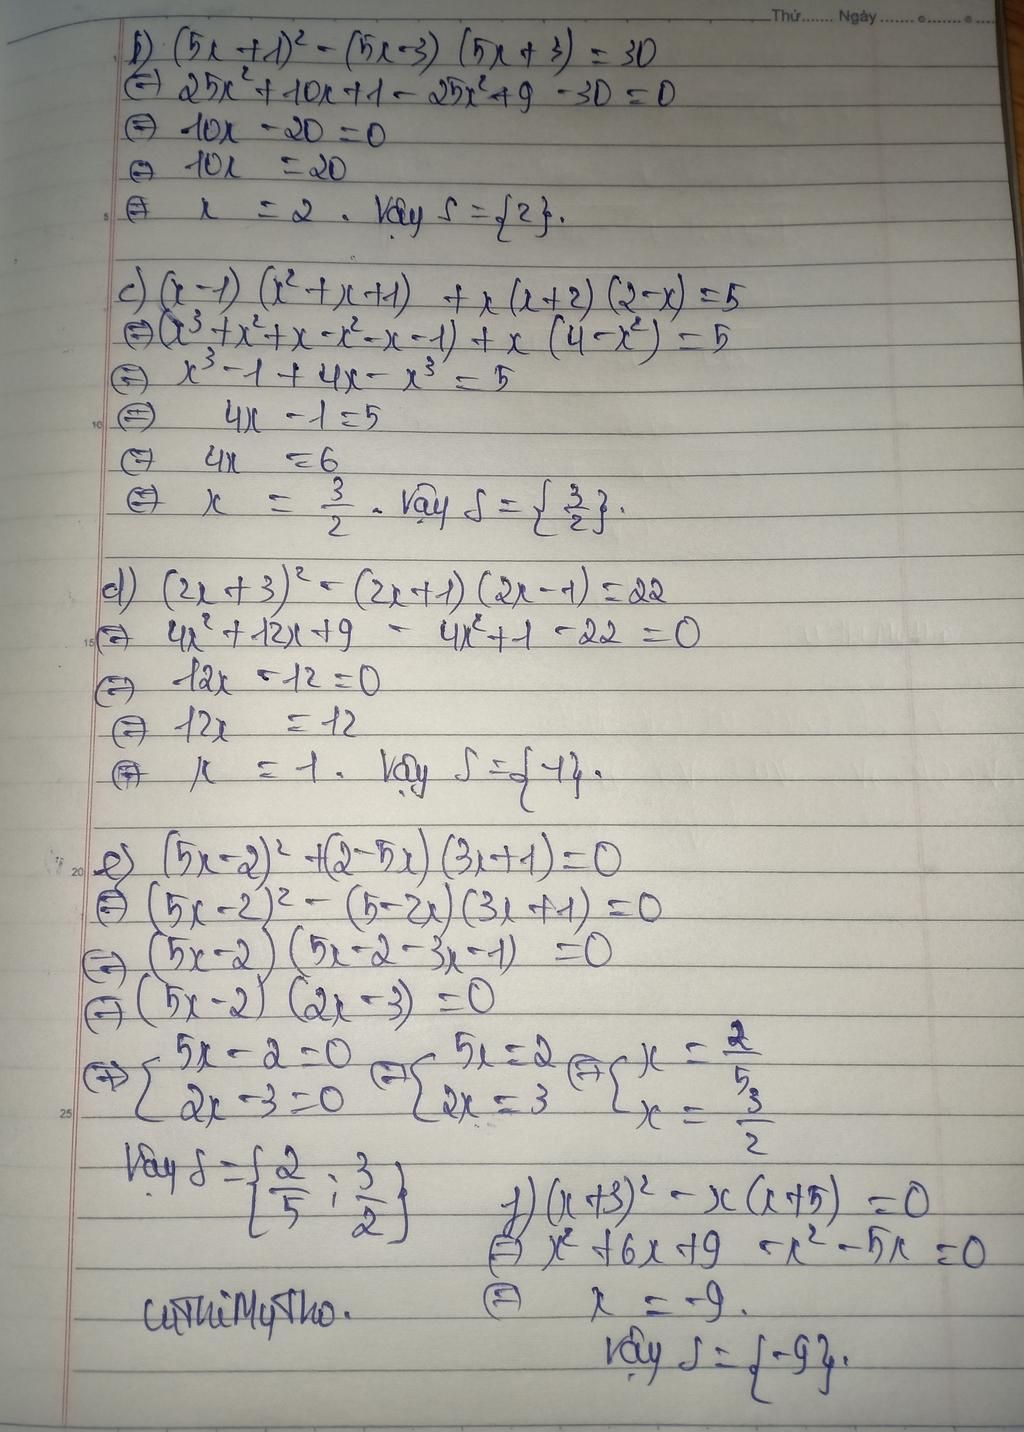 Thứ....... Ngày ....... ........ .....
b) (5x+1)² - (5x-3) (5x+3) = 30
⇔ 25x²+10x+1 - 25x²+9 -30=0
⇔ 10x -20=0
⇔ 10x =20
5 ⇔ x = 2. Vậy S={2}.
c) (x-1) (x²+x+1) + x(x+2) (2-x)=5
⇔(x³+x²+x-x²-x-1)+x (4-x²)=5
⇔ x³-1+4x-x³=5
10 ⇔ 4x -1=5
⇔ 4x =6
⇔ x = 3/2. Vậy S={3/2}.
d) (2x+3)² - (2x+1)(2x-1)=22
15 ⇔ 4x²+12x+9 - 4x²+1 -22=0
⇔ 12x -12=0
⇔ 12x =12
⇔ x = 1. Vậy S={1}.
20 e) (5x-2)² +(2-5x)(3x+1)=0
⇔ (5x-2)² - (5-2x)(3x+1)=0
⇔ (5x-2) (5x-2-3x-1) =0
⇔ (5x-2) (2x-3)=0
⇔ { 5x-2=0 ⇔ { 5x=2 ⇔ { x = 2/5
25 2x-3=0 2x=3 x = 3/2
Vậy S={2/5 ; 3/2}
f) (x+3)² - x(x+5) =0
⇔ x²+6x+9 -x²-5x=0
⇔ x = -9.
Vậy S={-9}.
LyThiMyTho.